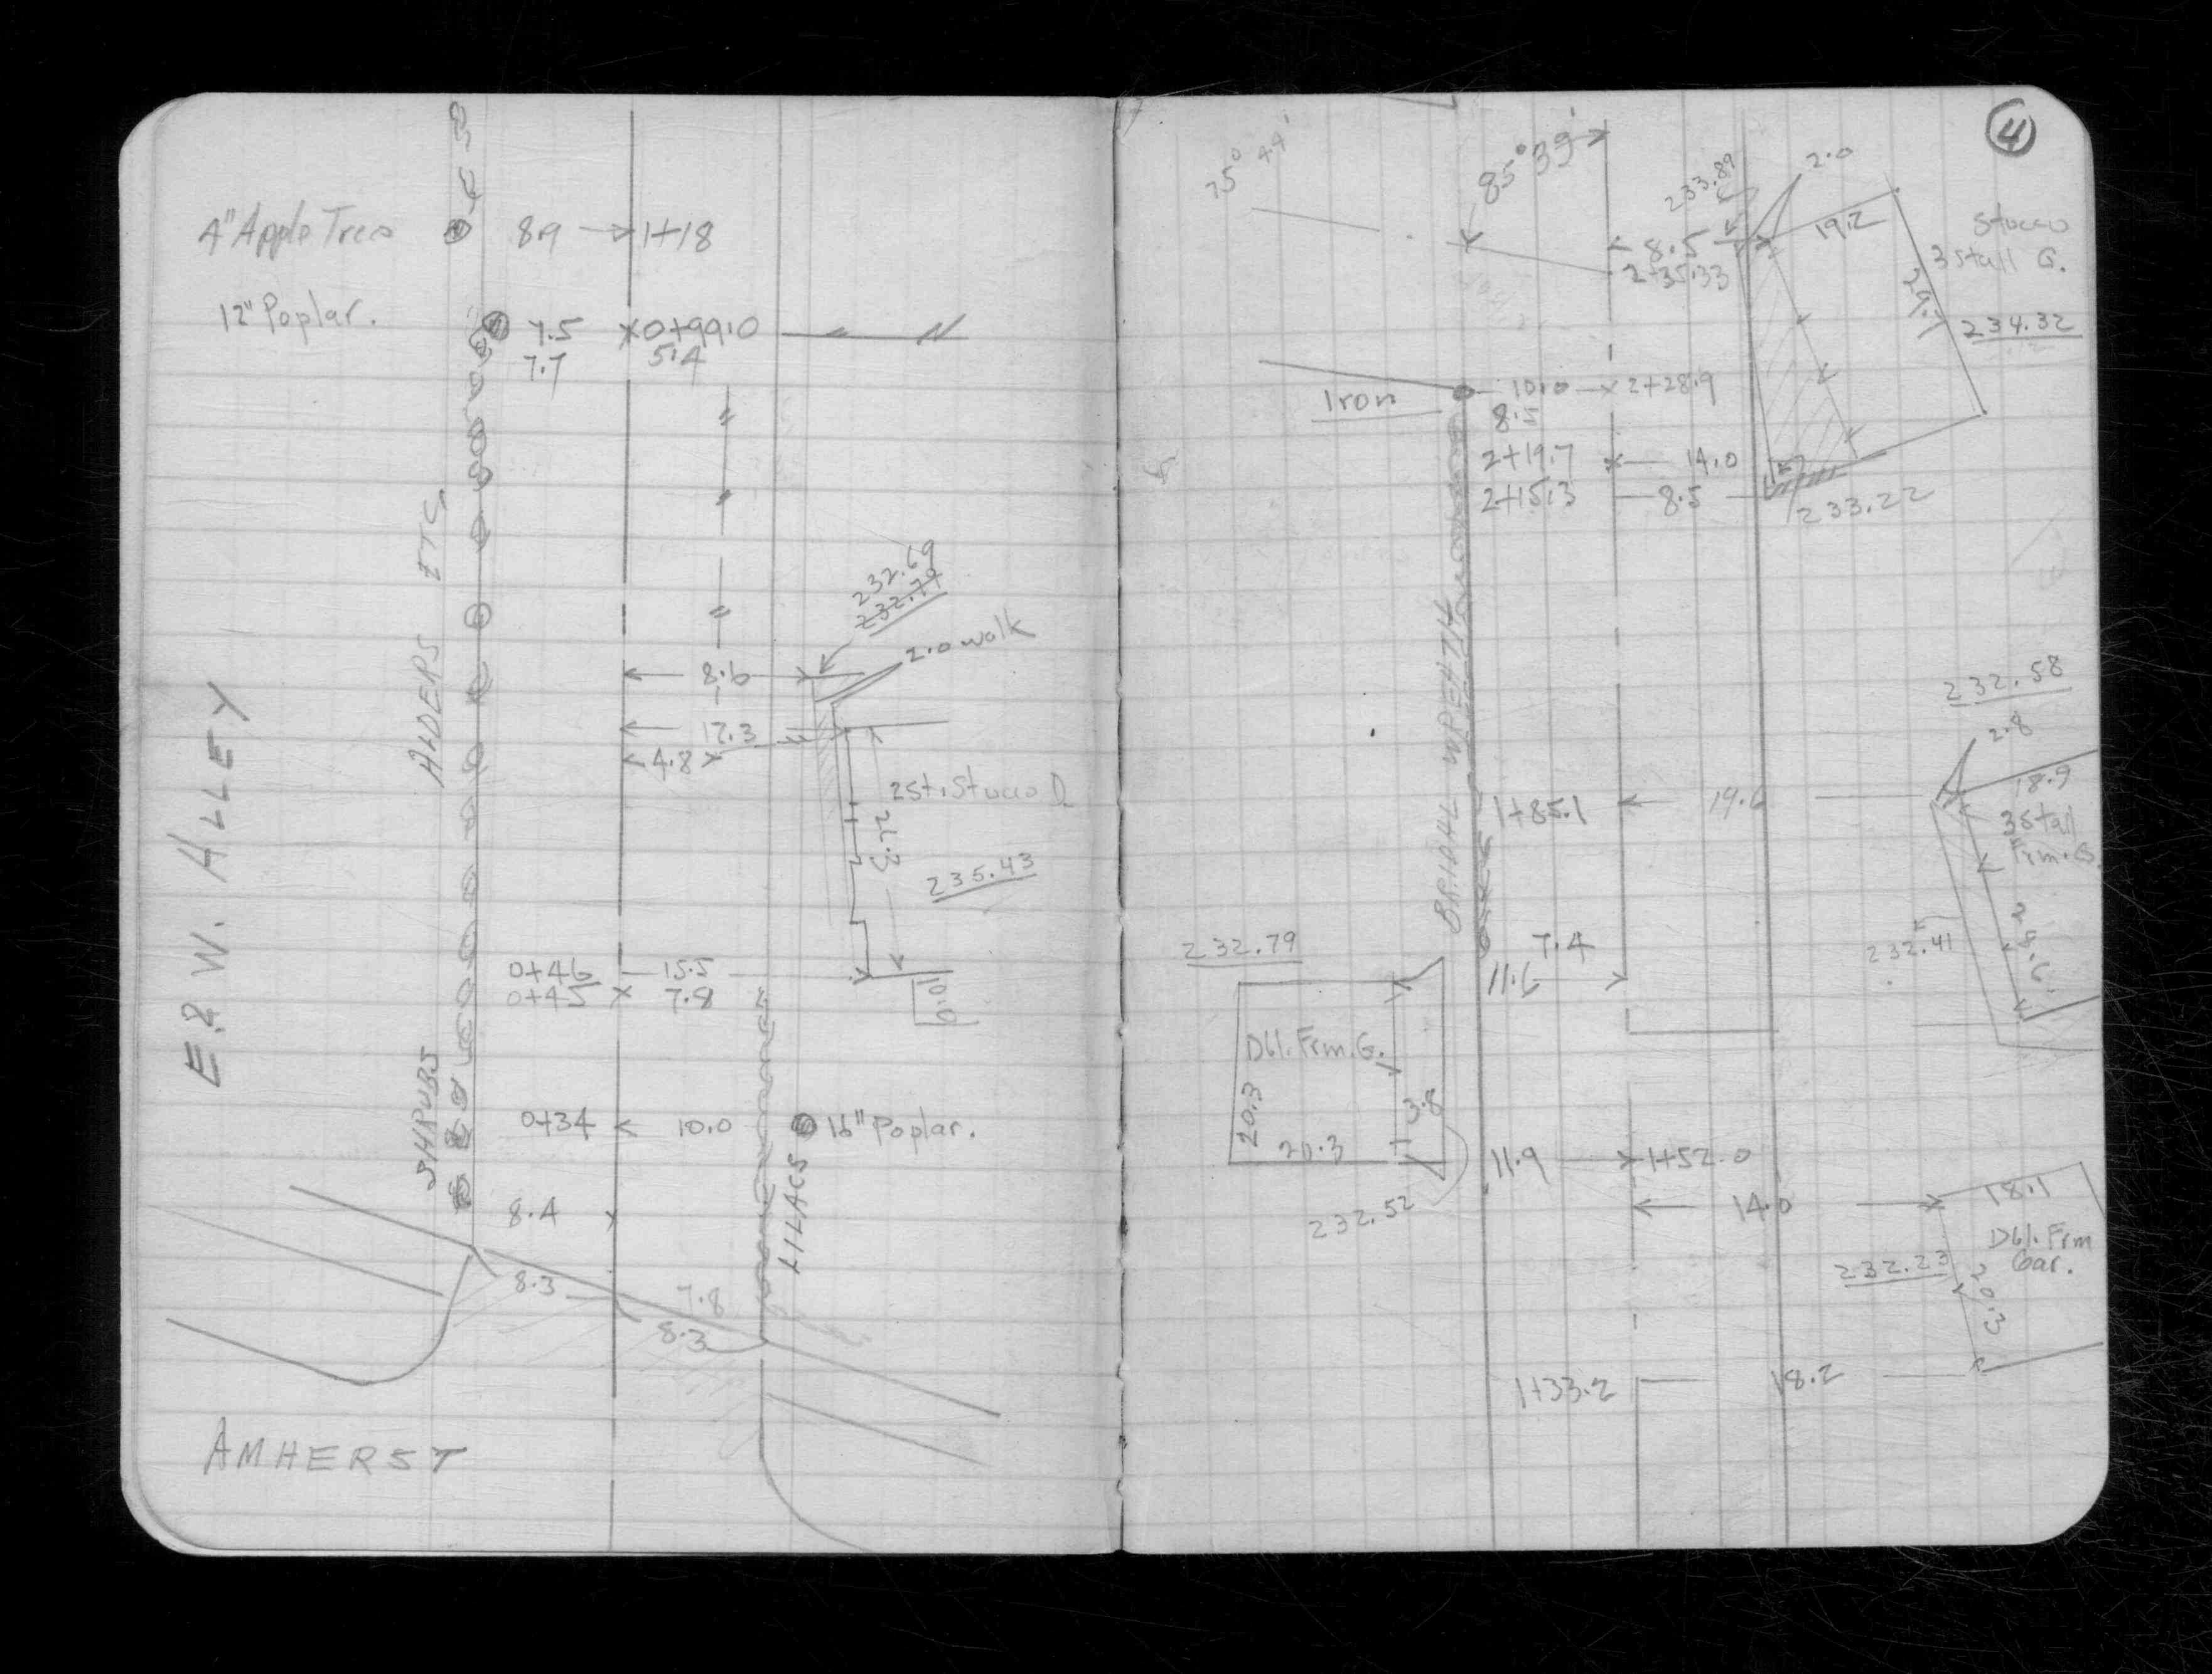 4" Apple Tree
8.9 1+18
12" Poplar.
7.5 0+99.0
7.7 5.4
ALDERS ETC.
232.69
232.79
2.0 walk
8.6
17.3
4.8
2 St. Stucco D.
27.3
235.43
E. & W. ALLEY
0+46 15.5
0+45 7.8
10.0
SHRUBS
0+34 10.0 16" Poplar.
LILACS
8.4
8.3 7.8
8.3
AMHERST
4
75° 44'
85° 39'
233.89
2.0
8.5
19.2
Stucco
3 Stall G.
2+35.33
29.1
234.32
Iron
10.0 2+28.9
8.5
2+19.7 14.0
2+15.3 8.5
233.22
BRIDAL WREATH
232.58
2.8
1+85.1 19.6
18.9
3 Stall
Frm. G.
29.2
232.41
232.79
7.4
11.6
Dbl. Frm. G.
20.3
3.8
20.3
11.9 1+52.0
232.52
14.0
18.1
Dbl. Frm
Gar.
232.23
20.3
1+33.2 18.2